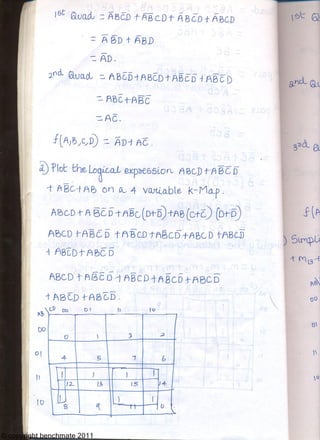 1st Quad = ĀB̄C̄D + ĀB̄CD + ĀBC̄D + ĀBCD
= ĀB̄D + ĀBD
= ĀD.
2nd Quad = ABC̄D+ABC̄D+AB̄C̄D̄+AB̄C̄D
= ABC̄+AB̄C̄
= AC̄.
f(A,B,C,D) = ĀD + AC̄.
2) Plot the Logical expression ABCD+AB̄C̄D̄
+ AB̄C+AB on a 4 variable K-Map.
ABCD+AB̄C̄D̄+AB̄C(D+D̄)+AB(C+C̄)(D+D̄)
ABCD+AB̄C̄D̄+AB̄CD+AB̄CD̄+ABCD+ABCD̄
+ABC̄D+ABC̄D̄
ABCD+AB̄C̄D̄+AB̄CD+AB̄CD̄+ABCD̄
+ABC̄D+ABC̄D̄.
AB\CD 00 01 11 10
00 0 1 3 2
01 4 5 7 6
11 1 1 1 1
12 13 15 14
10 1 1 1
8 9 11 10
1st Q
2nd Qu
3rd Q
f(A
) Simpli
+ m13 +
AB\
00
01
11
10
© copyright benchmate 2011